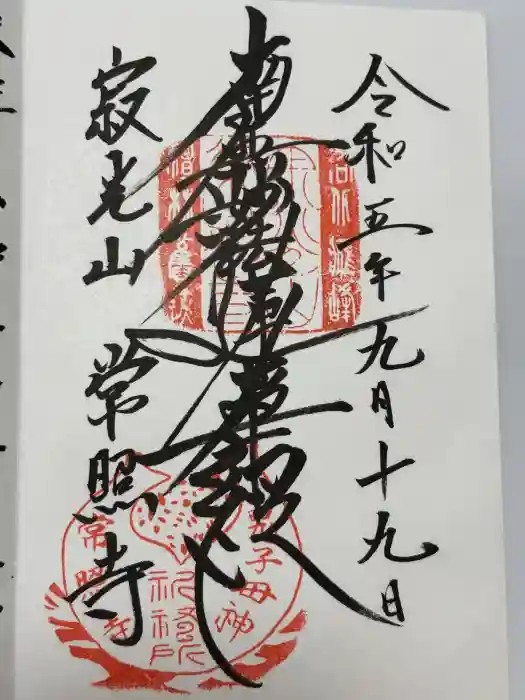 令和五年九月十九日
南無妙法蓮華経
寂光山 常照寺
洛北鷹峰
鬼子母神
常照寺
祈祷所